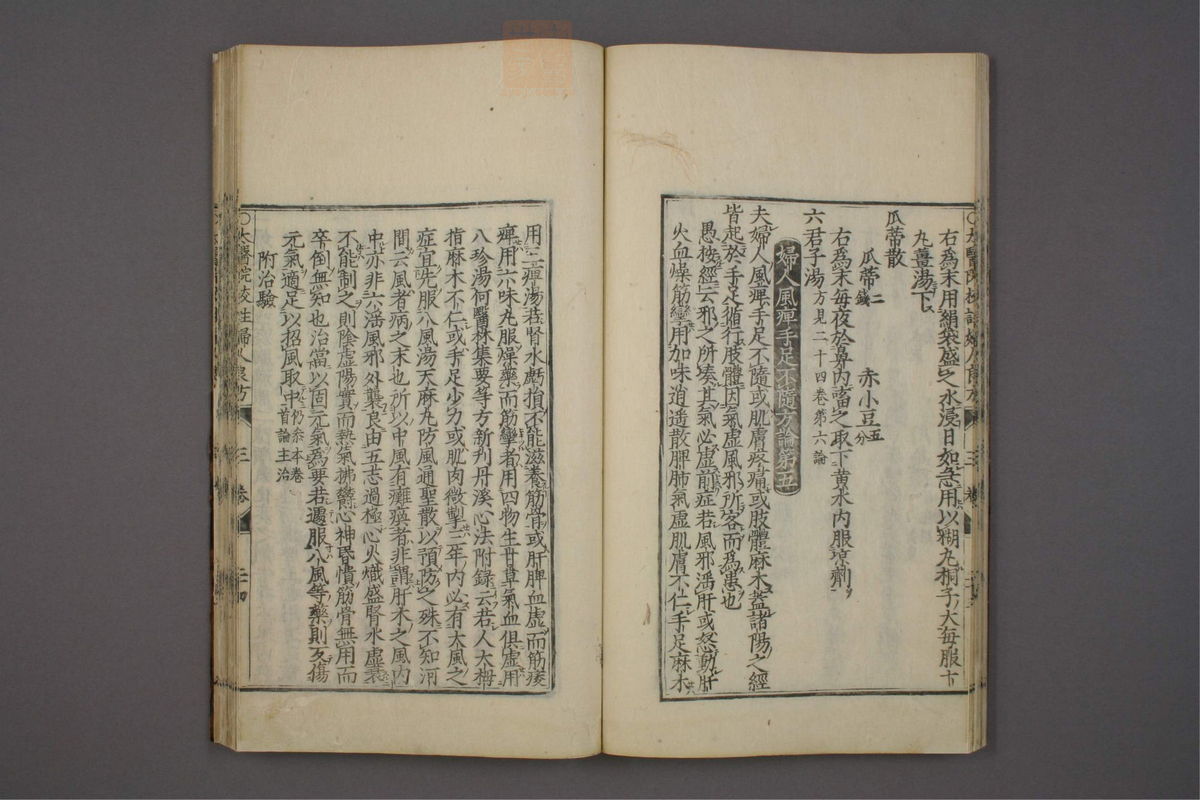 右爲末用絹袋盛之水浸日如急用以糊丸桐子大每服十
九薑湯下
瓜蒂散
瓜蒂二錢 赤小豆五分
右爲末每夜於鼻內畜之取下黃水內服凉劑
六君子湯方見二十四卷第六論
婦人風痺手足不隨方論第五
夫婦人風痺手足不隨或肌膚疼痛或肢體麻木蓋諸陽之經
皆起於手足循行肢體因氣虛風邪所客而爲患也
愚按經云邪之所湊其氣必虛前症若風邪淫肝或怒動肝
火血燥筋攣用加味逍遥散脾肺氣虛肌膚不仁手足麻木
三卷
用三痺湯若腎水虧損不能滋養筋骨或肝脾血虛而筋痿
痺用六味丸服燥藥而筋攣者用四物生甘草氣血俱虛用
八珍湯何醫林集要等方新刋丹溪心法附錄云若人大拇
指麻木不仁或手足少力或肌肉微掣三年內必有大風之
症宜先服八風湯天麻丸防風通聖散以預防之殊不知河
間云風者病之末也所以中風有癱瘓者非謂肝木之風內
中亦非六淫風邪外襲良由五志過極心火熾盛腎水虛衰
不能制之則陰虛陽實而熱氣拂鬱心神昏憒筋骨無用而
卒倒無知也治當以固元氣爲要若遽服八風等藥則反傷
元氣適足以招風取中仍叅本卷首論主治
附治驗
○太醫院校註婦人良方
三卷